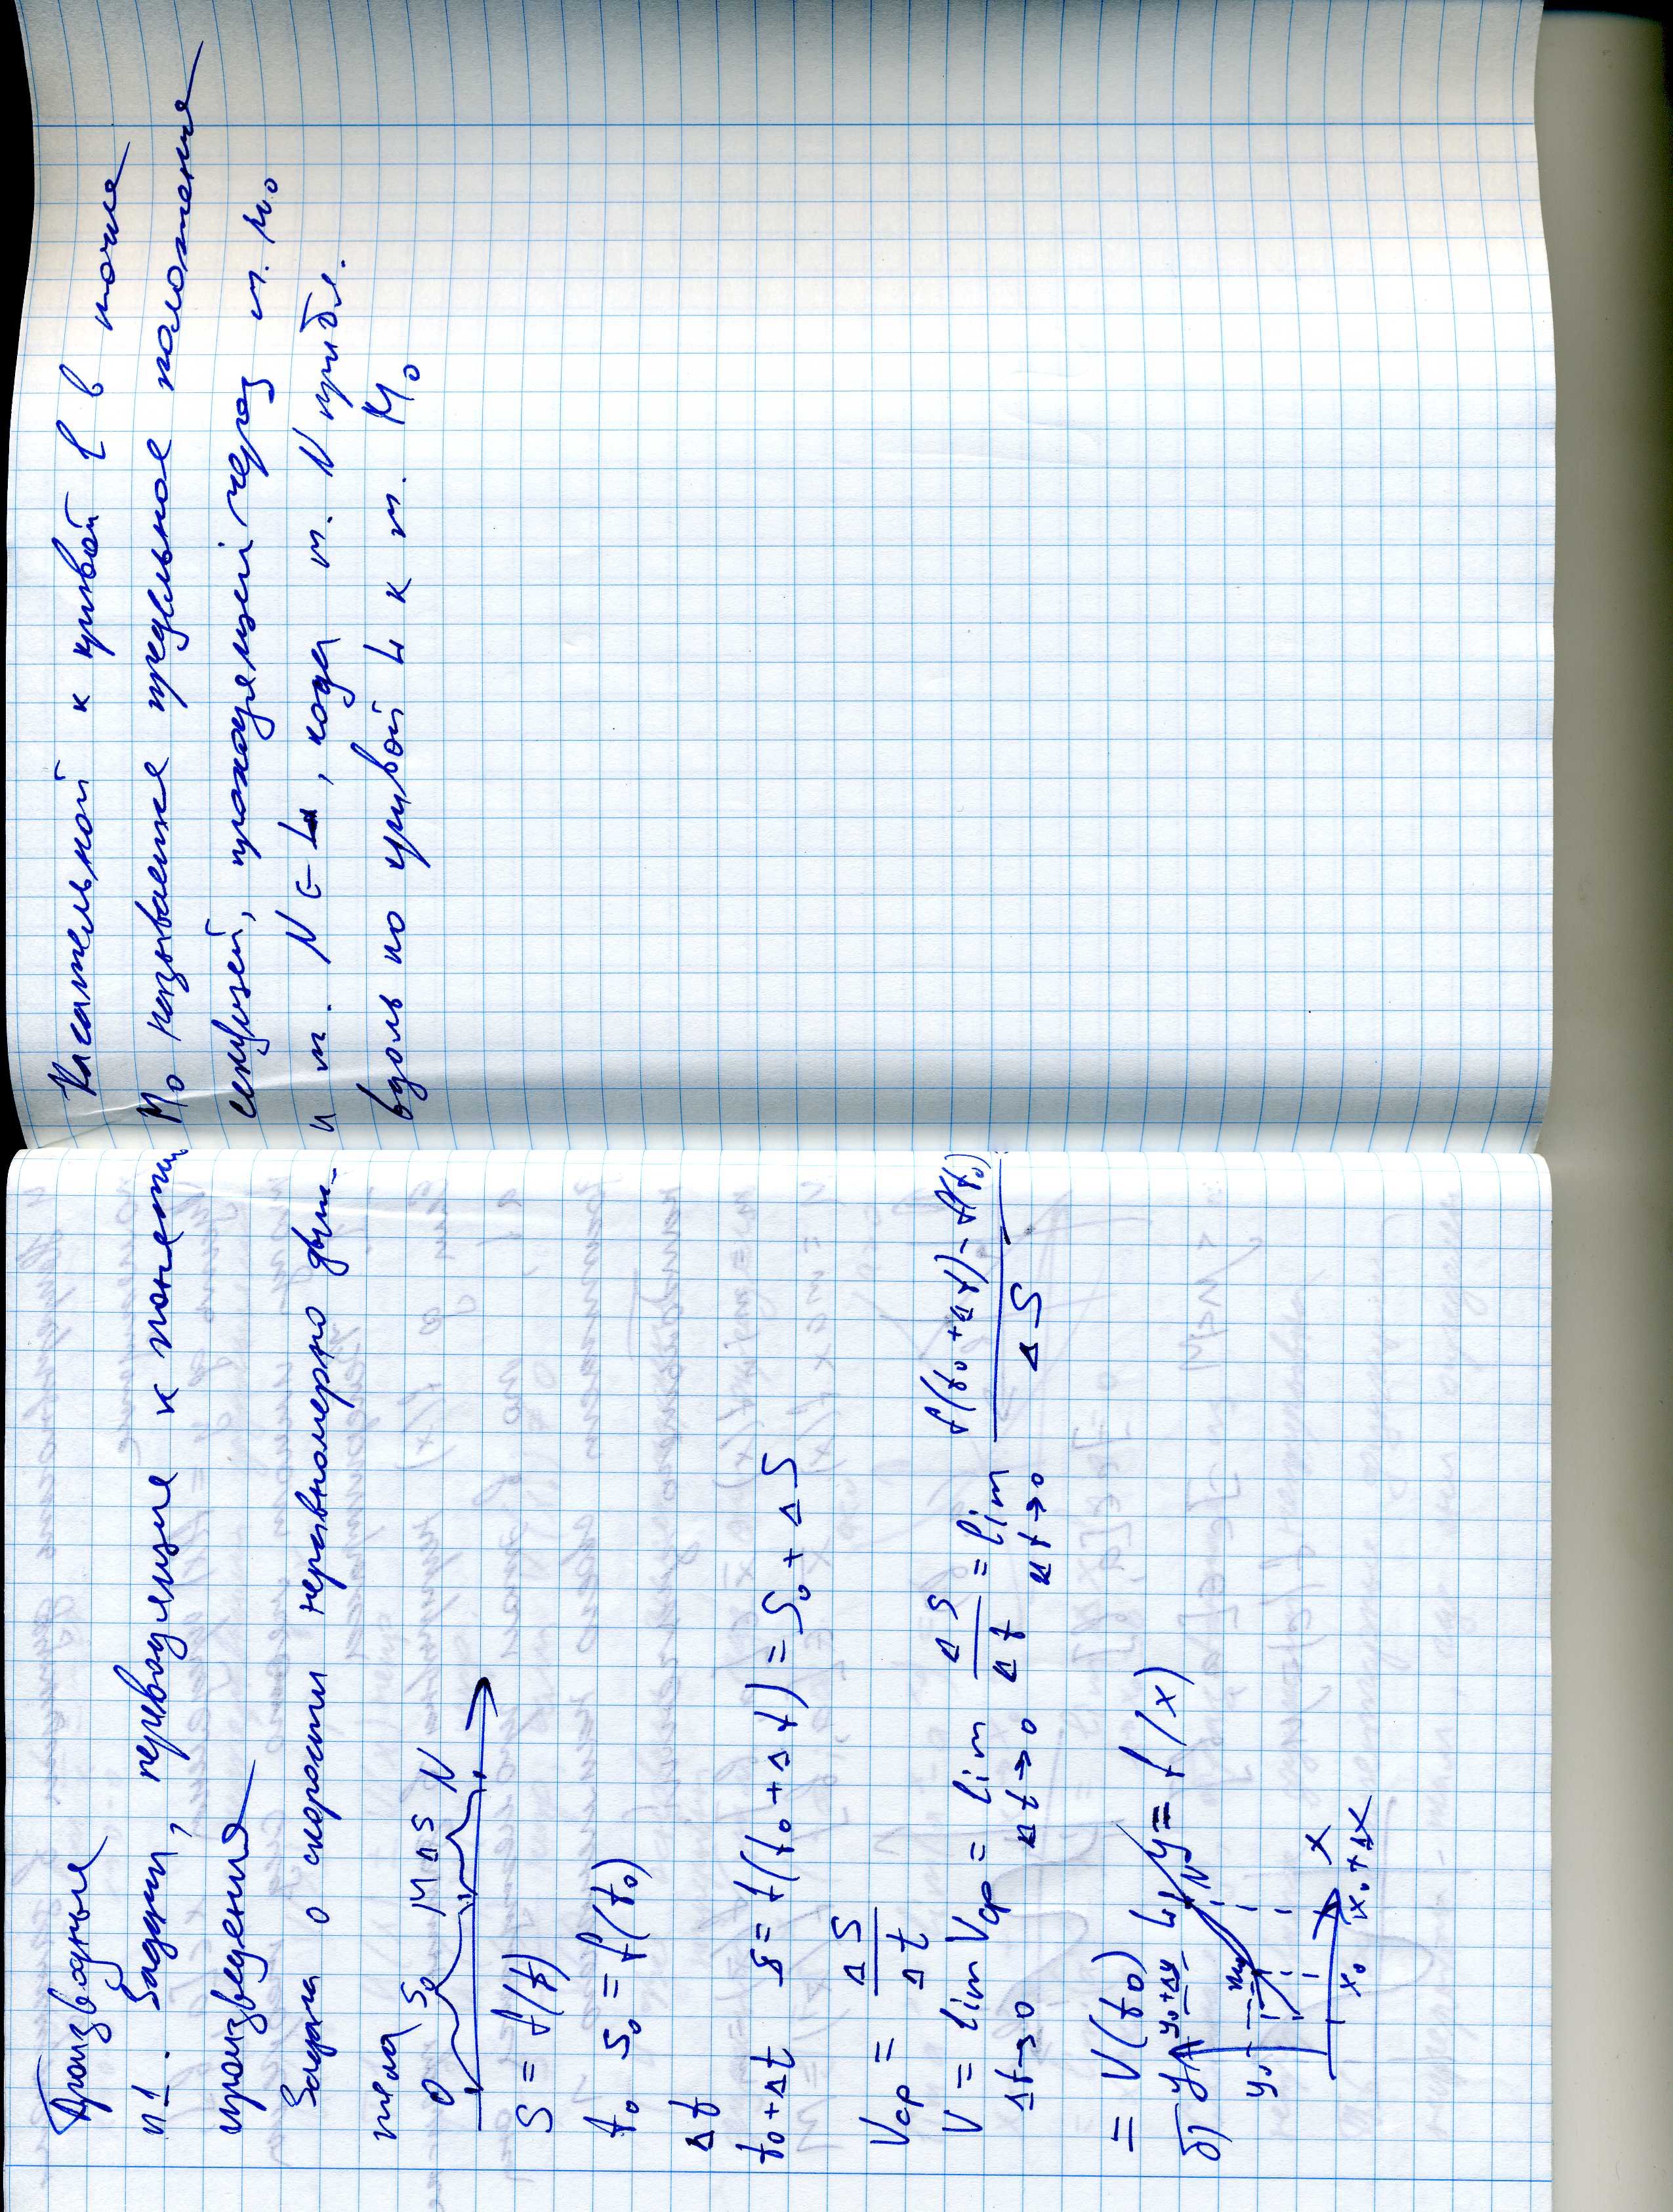 Производные
п1. Задачи, переводящие к понятию
произведения
Задача о скорости неравномерно дви-
тела
0 S₀ M ΔS N
S = f(t)
t₀ S₀ = f(t₀)
Δt
t₀+Δt S = f(t₀+Δt) = S₀ + ΔS
Vср = ΔS/Δt
V = lim Vср = lim ΔS/Δt = lim (f(t₀+Δt) - f(t₀))/ΔS
Δt→0 Δt→0 Δt→0
= V(t₀)
б) y y₀+Δy L N y = f(x)
y₀
x₀ x₀+Δx x
Касательной к кривой l в точке
M₀ называется предельное положение
секущей, проходящей через т. M₀
и т. N ∈ L, когда т. N прибл.
вдоль по кривой L к т. M₀